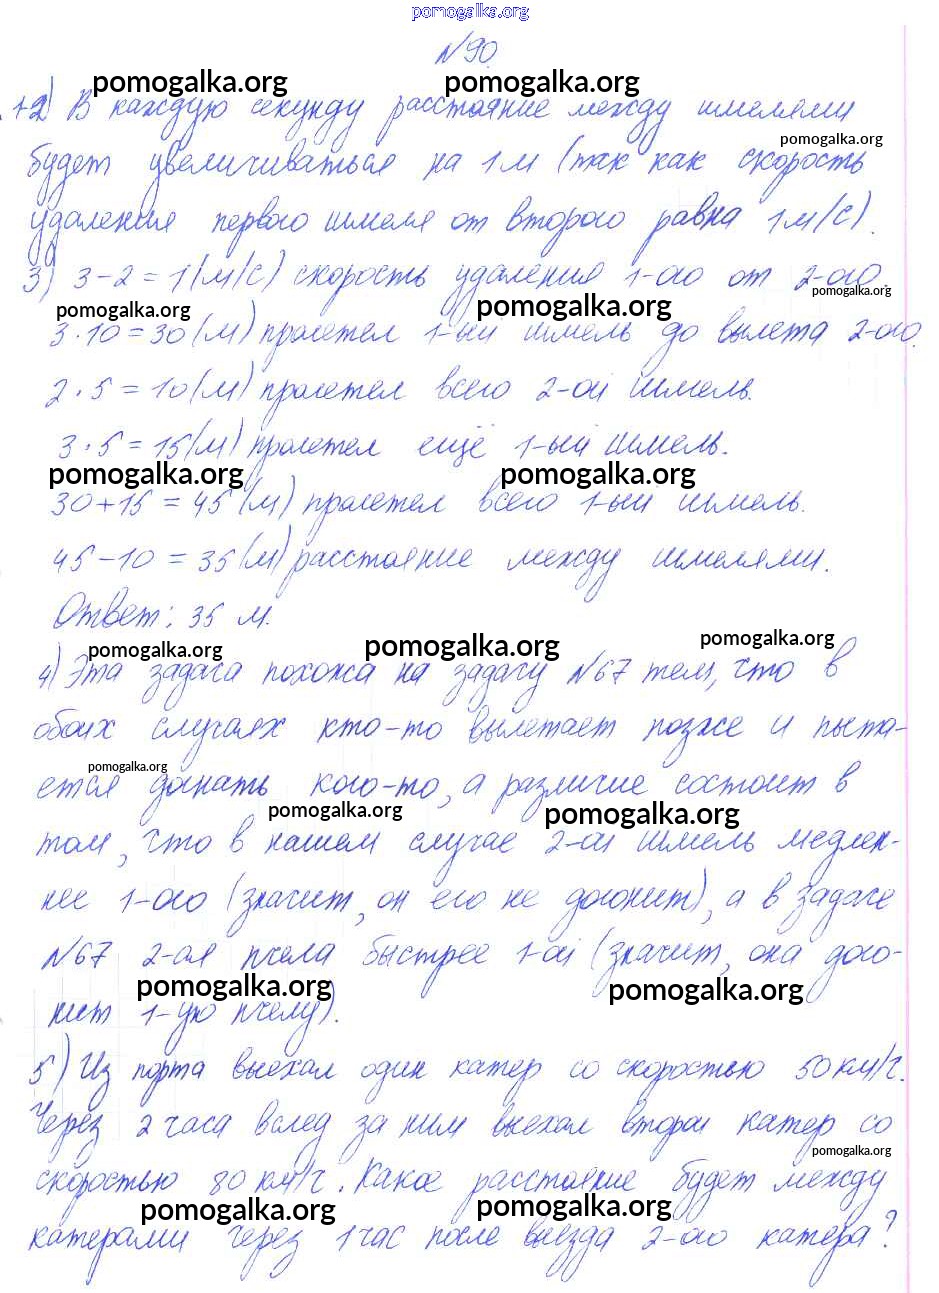 pomogalka.org
№90.
pomogalka.org pomogalka.org
1-2) В каждую секунду расстояние между шмелями
pomogalka.org
будет увеличиваться на 1 м (так как скорость
удаления первого шмеля от второго равна 1 м/с).
3) 3-2=1(м/с) скорость удаления 1-ого от 2-ого.
pomogalka.org pomogalka.org pomogalka.org
3·10=30(м) пролетел 1-ый шмель до вылета 2-ого.
2·5=10(м) пролетел всего 2-ой шмель.
3·5=15(м) пролетел ещё 1-ый шмель.
pomogalka.org pomogalka.org
30+15=45(м) пролетел всего 1-ый шмель.
45-10=35(м) расстояние между шмелями.
Ответ: 35 м.
pomogalka.org pomogalka.org pomogalka.org
4) Эта задача похожа на задачу №67 тем, что в
обоих случаях кто-то вылетает позже и пыта-
pomogalka.org
ется догнать кого-то, а различие состоит в
pomogalka.org pomogalka.org
том, что в нашем случае 2-ой шмель медлен-
нее 1-ого (значит, он его не догонит), а в задаче
№67 2-ая пчела быстрее 1-ой (значит, она дого-
pomogalka.org pomogalka.org
нит 1-ую пчелу).
5) Из порта выехал один катер со скоростью 50 км/ч.
Через 2 часа вслед за ним выехал второй катер со
pomogalka.org
скоростью 80 км/ч. Какое расстояние будет между
pomogalka.org pomogalka.org
катерами через 1 час после выезда 2-ого катера?